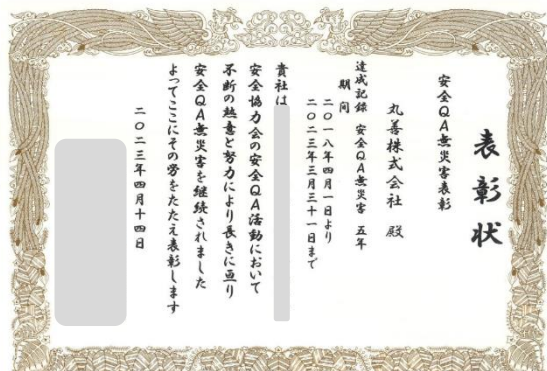 表彰状
安全QA無災害表彰
丸善株式会社 殿
達成記録 安全QA無災害 五年
期間
二〇一八年四月一日より
二〇二三年三月三十一日まで
貴社は
安全協力会の安全QA活動において
不断の熱意と努力により長きに亘り
安全QA無災害を継続されました
よってここにその労をたたえ表彰します
二〇二三年四月十四日